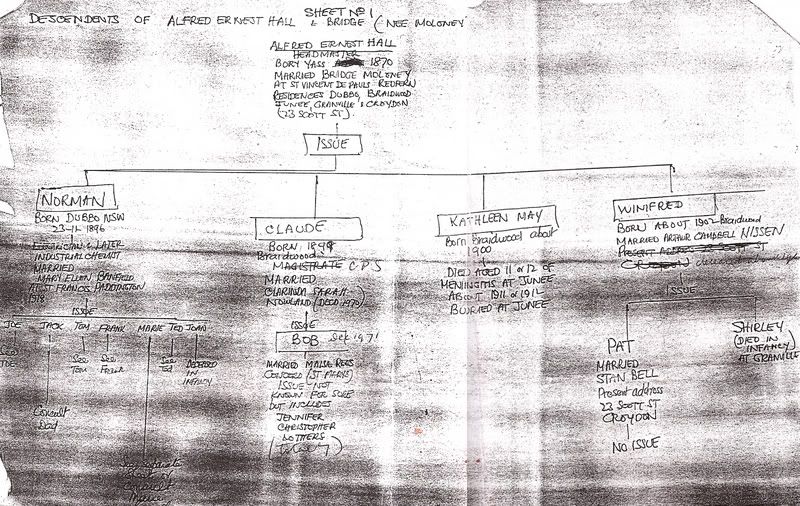 SHEET No 1
DESCENDENTS OF ALFRED ERNEST HALL & BRIDGE (NEE MOLONEY
ALFRED ERNEST HALL
HEADMASTER
BORN YASS 1870
MARRIED BRIDGE MOLONEY
AT ST VINCENT DE PAULS REDFERN
RESIDENCES DUBBO, BRAIDWOOD
JUNEE, GRANVILLE & CROYDON
(23 SCOTT ST).
ISSUE
NORMAN
BORN DUBBO NSW
23-11-1896
& LATER
INDUSTRIAL CHEMIST
MARRIED
MARY ELLEN BANFIELD
AT ST FRANCIS, PADDINGTON
1918
ISSUE
JOE
JACK
TOM
FRANK
MARIE
TED
JOAN
See
JOE
See
Tom
See
Frank
See
Ted
DECEASED
IN
INFANCY
Consult
Dad
CLAUDE
BORN
Braidwood
MAGISTRATE C.P.S
MARRIED
CLARINDA SARAH
NOWLAND (DECD 1970)
ISSUE
BOB
MARRIED REES
CONCORD (ST MARYS)
ISSUE NOT
KNOWN FOR SURE
BUT INCLUDES
JENNIFER
CHRISTOPHER
KATHLEEN MAY
Born Braidwood about
1900
DIED AGED 11 or 12 of
MENINGITIS AT JUNEE
ABOUT 1911 or 1912
BURIED AT JUNEE
WINIFRED
BORN ABOUT 1902 Braidwood
MARRIED ARTHUR CAMPBELL NISSEN
PRESENT ADDRESS 23 SCOTT ST
CROYDON
ISSUE
PAT
MARRIED
STAN BELL
Present address
23 SCOTT ST
CROYDON
NO ISSUE
SHIRLEY
(DIED IN
INFANCY)
AT GRANVILLE